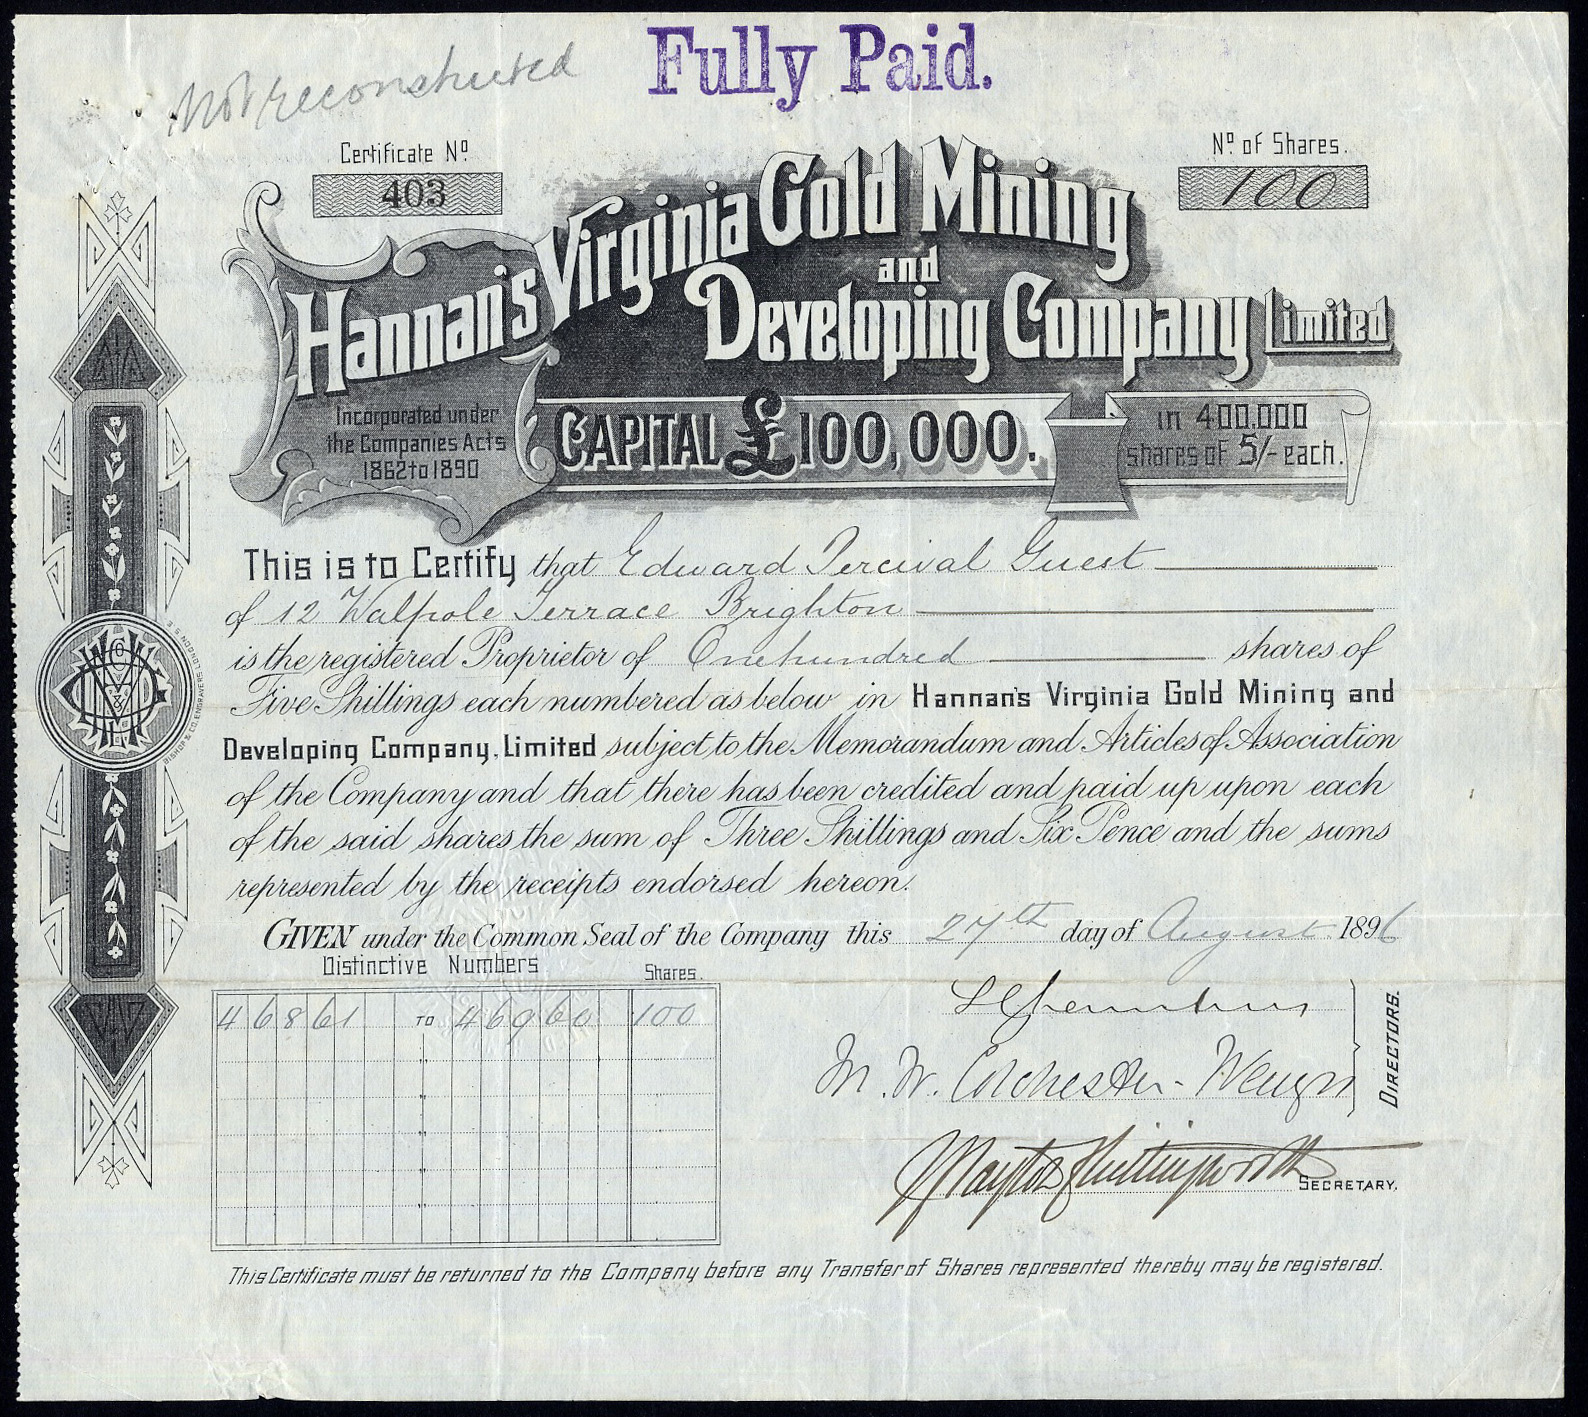 Not reconstructed
Fully Paid.
Certificate Nº
403
Nº of Shares.
100
Hannan's Virginia Gold Mining
and
Developing Company Limited
Incorporated under
the Companies Acts
1862 to 1890
CAPITAL £100,000.
in 400.000
shares of 5/- each.
This is to Certify that Edward Percival Guest
of 12 Walpole Terrace Brighton
is the registered Proprietor of One hundred shares of
Five Shillings each numbered as below in Hannan's Virginia Gold Mining and
Developing Company, Limited subject to the Memorandum and Articles of Association
of the Company and that there has been credited and paid up upon each
of the said shares the sum of Three Shillings and Six Pence and the sums
represented by the receipts endorsed hereon.
GIVEN under the Common Seal of the Company this 27th day of August 1896
Distinctive Numbers Shares.
46861 TO 46960 100
M. W. Colchester-Wemyss
DIRECTORS.
SECRETARY.
This Certificate must be returned to the Company before any Transfer of Shares represented thereby may be registered.
BISHOP & CO. ENGRAVERS. LONDON S.E.